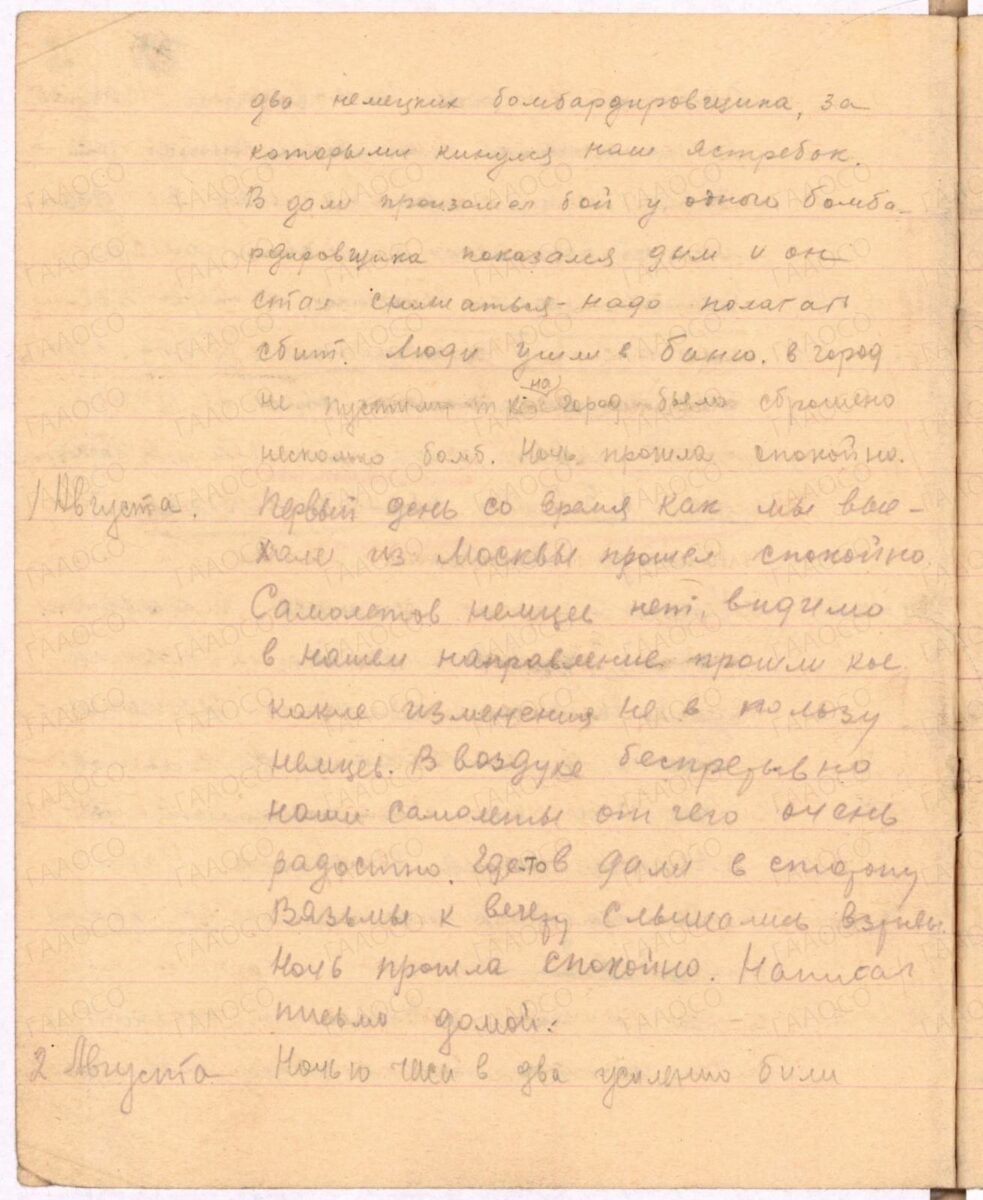 два немецких бомбардировщика, за
которыми кинулся наш Ястребок.
В дали произошел бой у одного бомба-
рдировщика показался дым и он
стал снижаться - надо полагать
сбит. Люди ушли в баню. в город
не пустили т к на город было сброшено
несколько бомб. Ночь прошла спокойно.
1 Августа. Первый день со время как мы вые-
хали из Москвы прошел спокойно.
Самолетов немцев нет, видимо
в нашем направление прошли кое
какие изменения не в пользу
немцев. В воздухе беспрерывно
наши самолеты от чего очень
радостно. Где то в дали в сторону
Вязьмы к вечеру слышались взрывы.
Ночь прошла спокойно. Написал
письмо домой.
2 Августа Ночью часа в два усиленно били